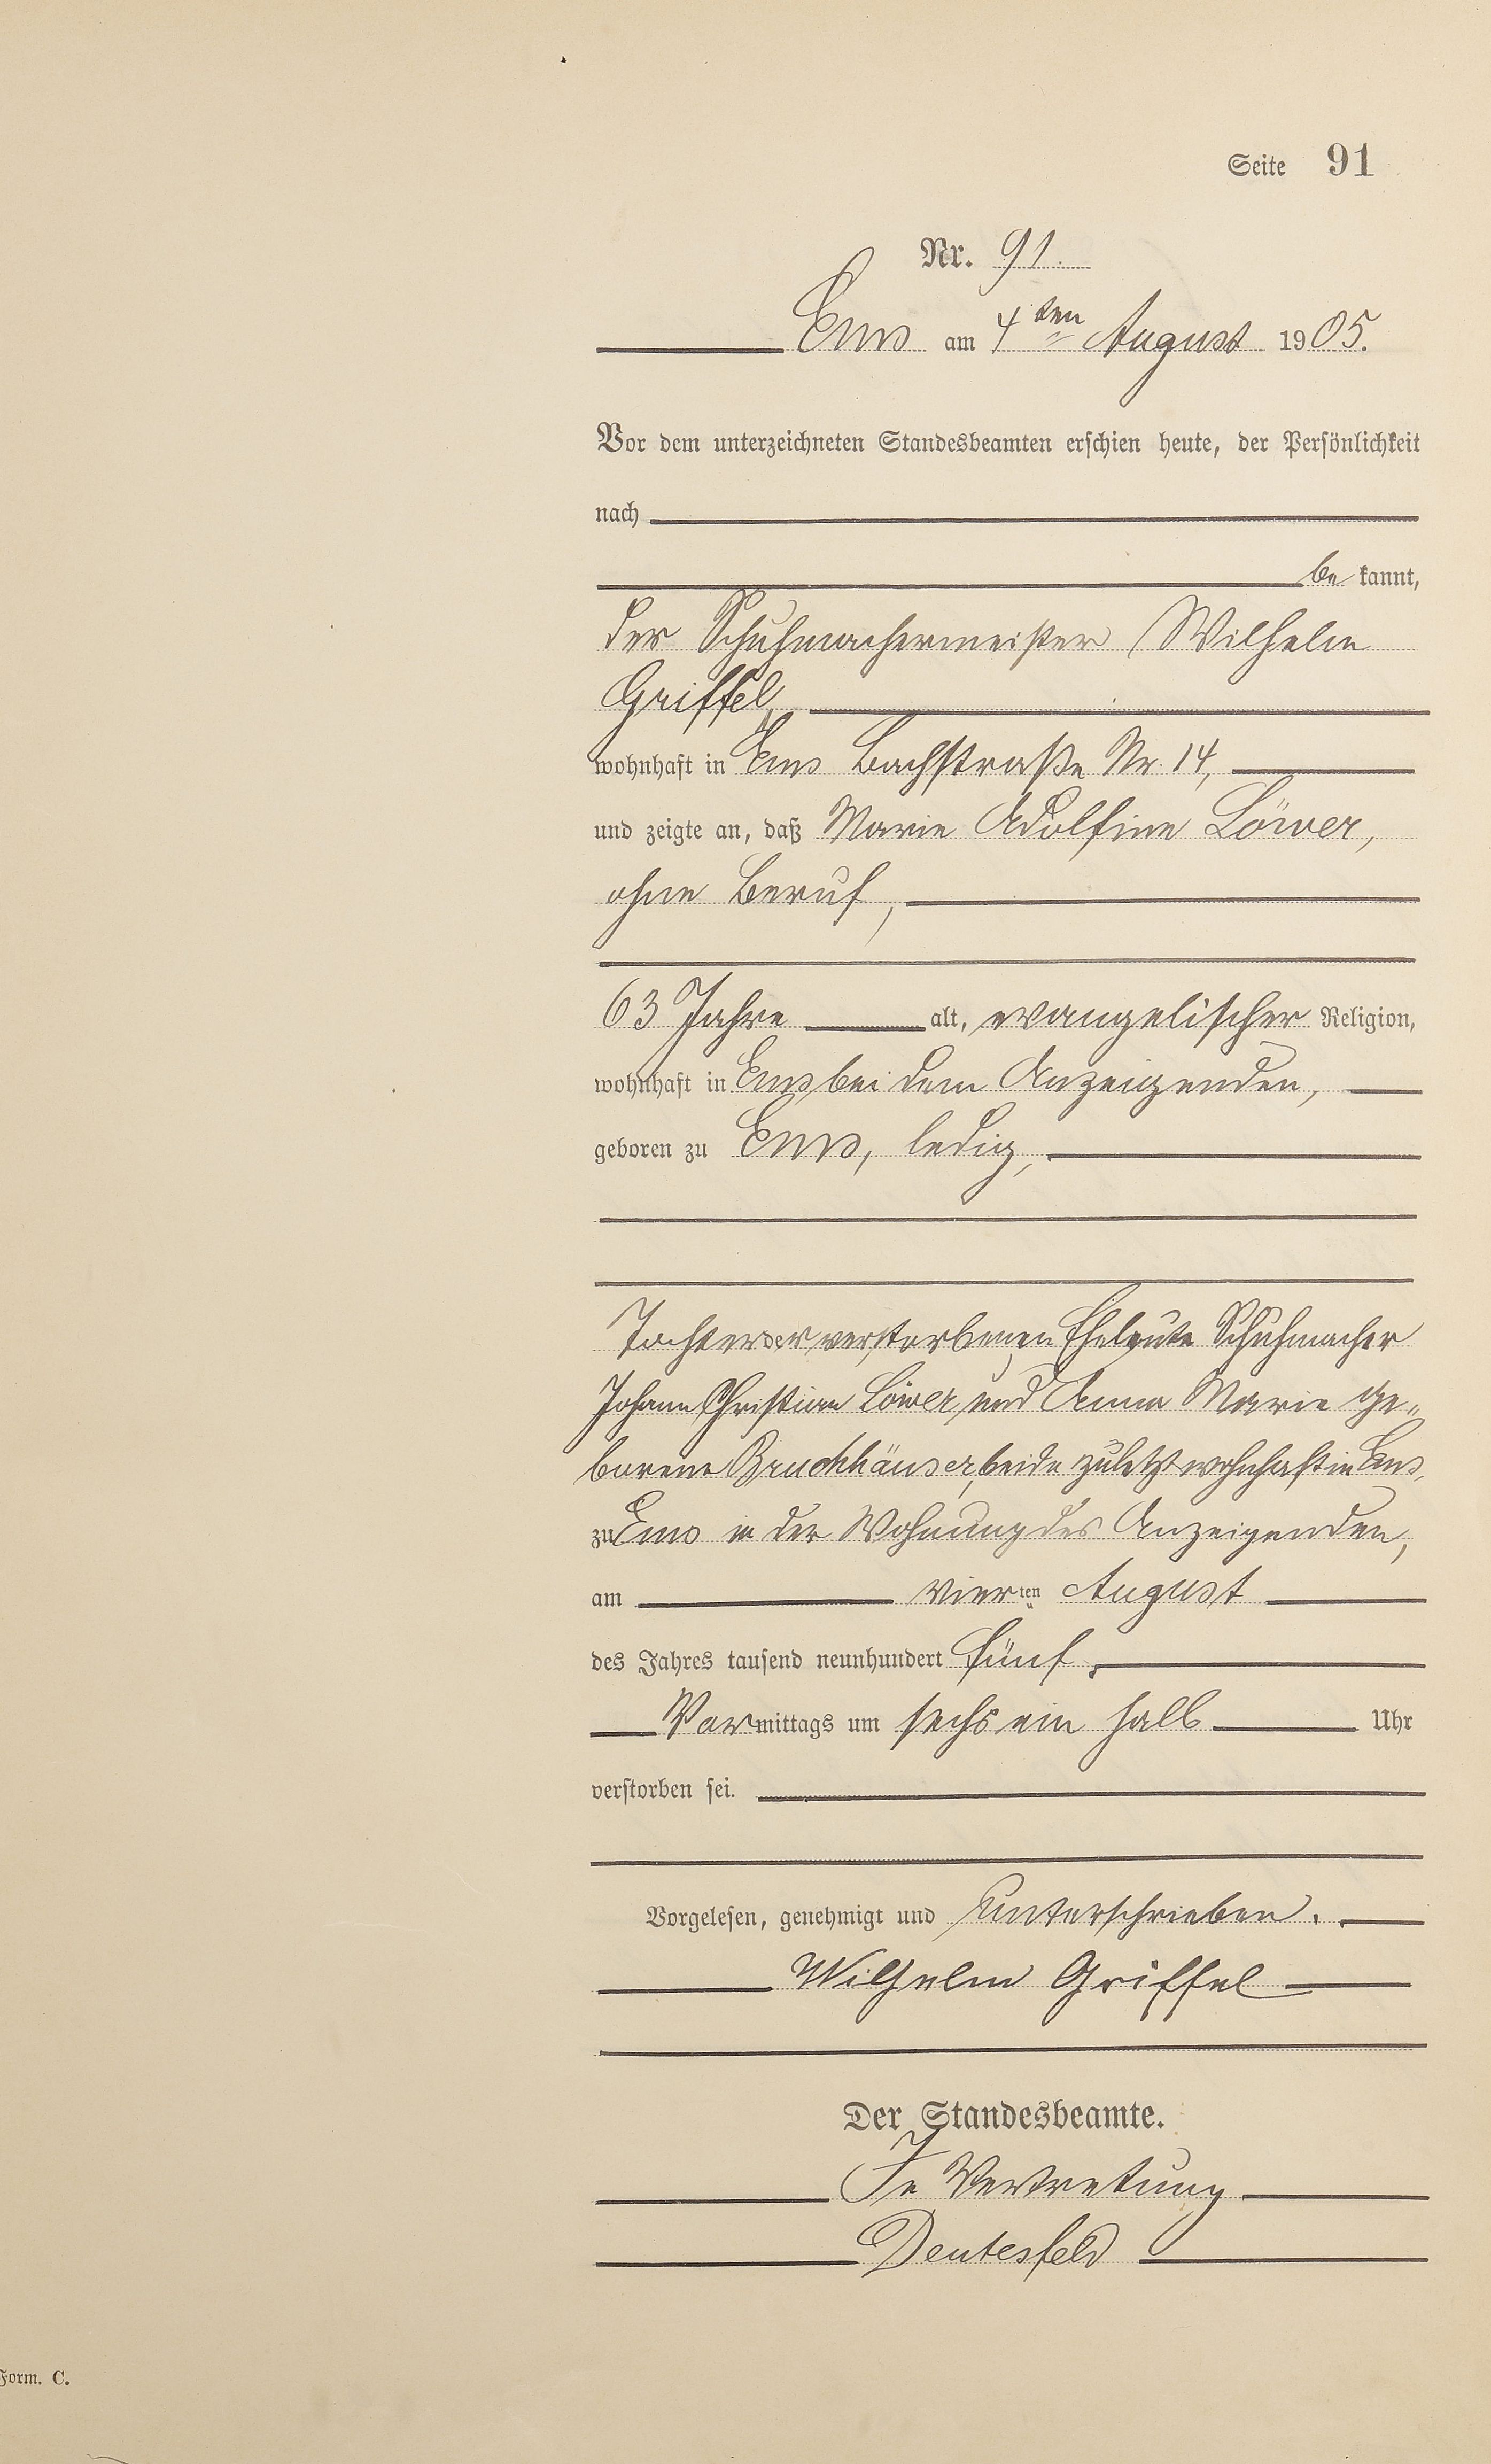 Seite 91
Nr. 91.
Ems am 4ten August 1905.
Vor dem unterzeichneten Standesbeamten erschien heute, der Persönlichkeit
nach
be kannt,
der Schuhmachermeister Wilhelm
Griffel,
wohnhaft in Ems Bachstraße Nr. 14,
und zeigte an, daß Marie Adolfine Löwer,
ohne Beruf,
63 Jahre alt, evangelischer Religion,
wohnhaft in Ems bei dem Anzeigenden,
geboren zu Ems, ledig,
Tochter der verstorbenen Eheleute Schuhmacher
Johann Christian Löwer und Anna Marie ge„
borene Bruchhäuser, beide zuletzt wohnhaft in Ems,
zu Ems in der Wohnung des Anzeigenden,
am vierten August
des Jahres tausend neunhundert fünf,
Vormittags um sechs ein halb Uhr
verstorben sei.
Vorgelesen, genehmigt und unterschrieben.
Wilhelm Griffel
Der Standesbeamte.
In Vertretung
Deutesfeld
Form. C.